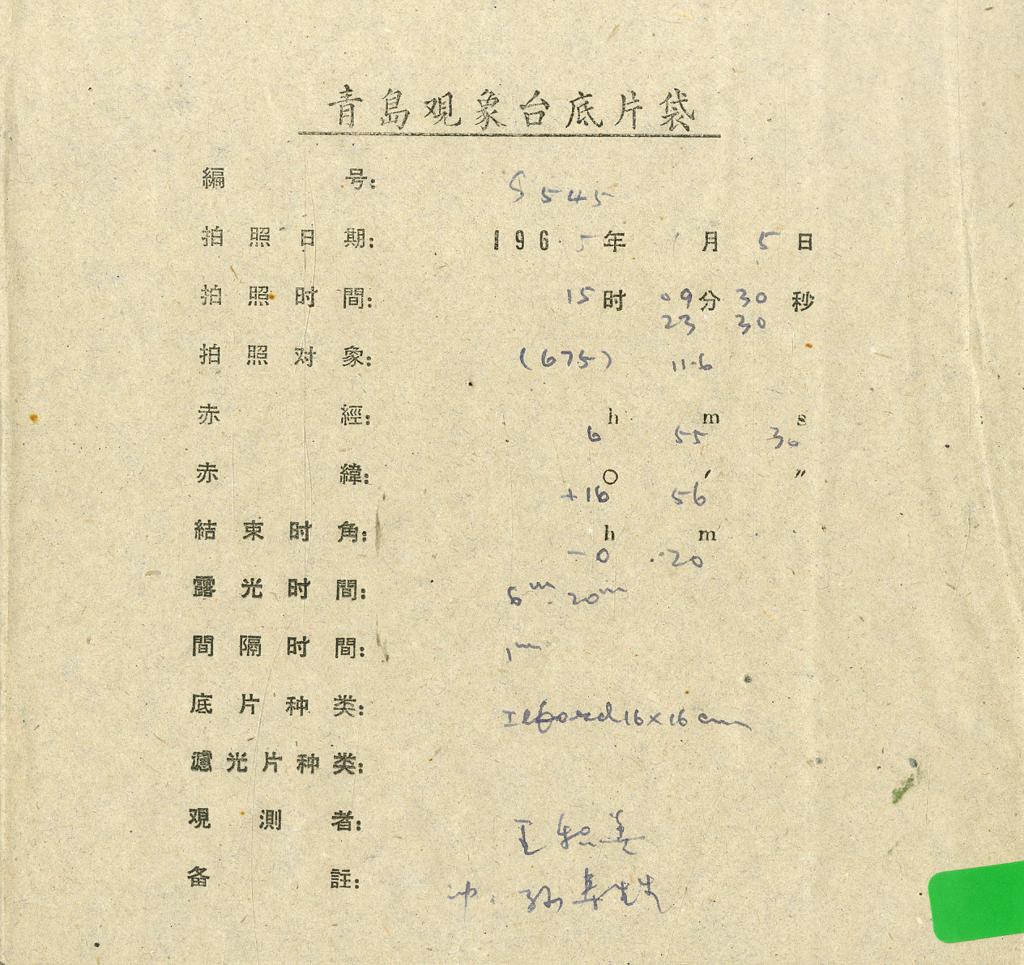 青島观象台底片袋
編号: S 545
拍照日期: 1965年 1月 5日
拍照时間: 15时 09分 30秒
23 30
拍照对象: (675) 11.6
赤經: h m s
6 55 30
赤緯: ○ ′ ″
+16 56
結束时角: h m
-0 20
露光时間: 5m 20m
間隔时間: 1m
底片种类: Ilford 16×16 cm
濾光片种类:
观測者: 王
备註: 冲.